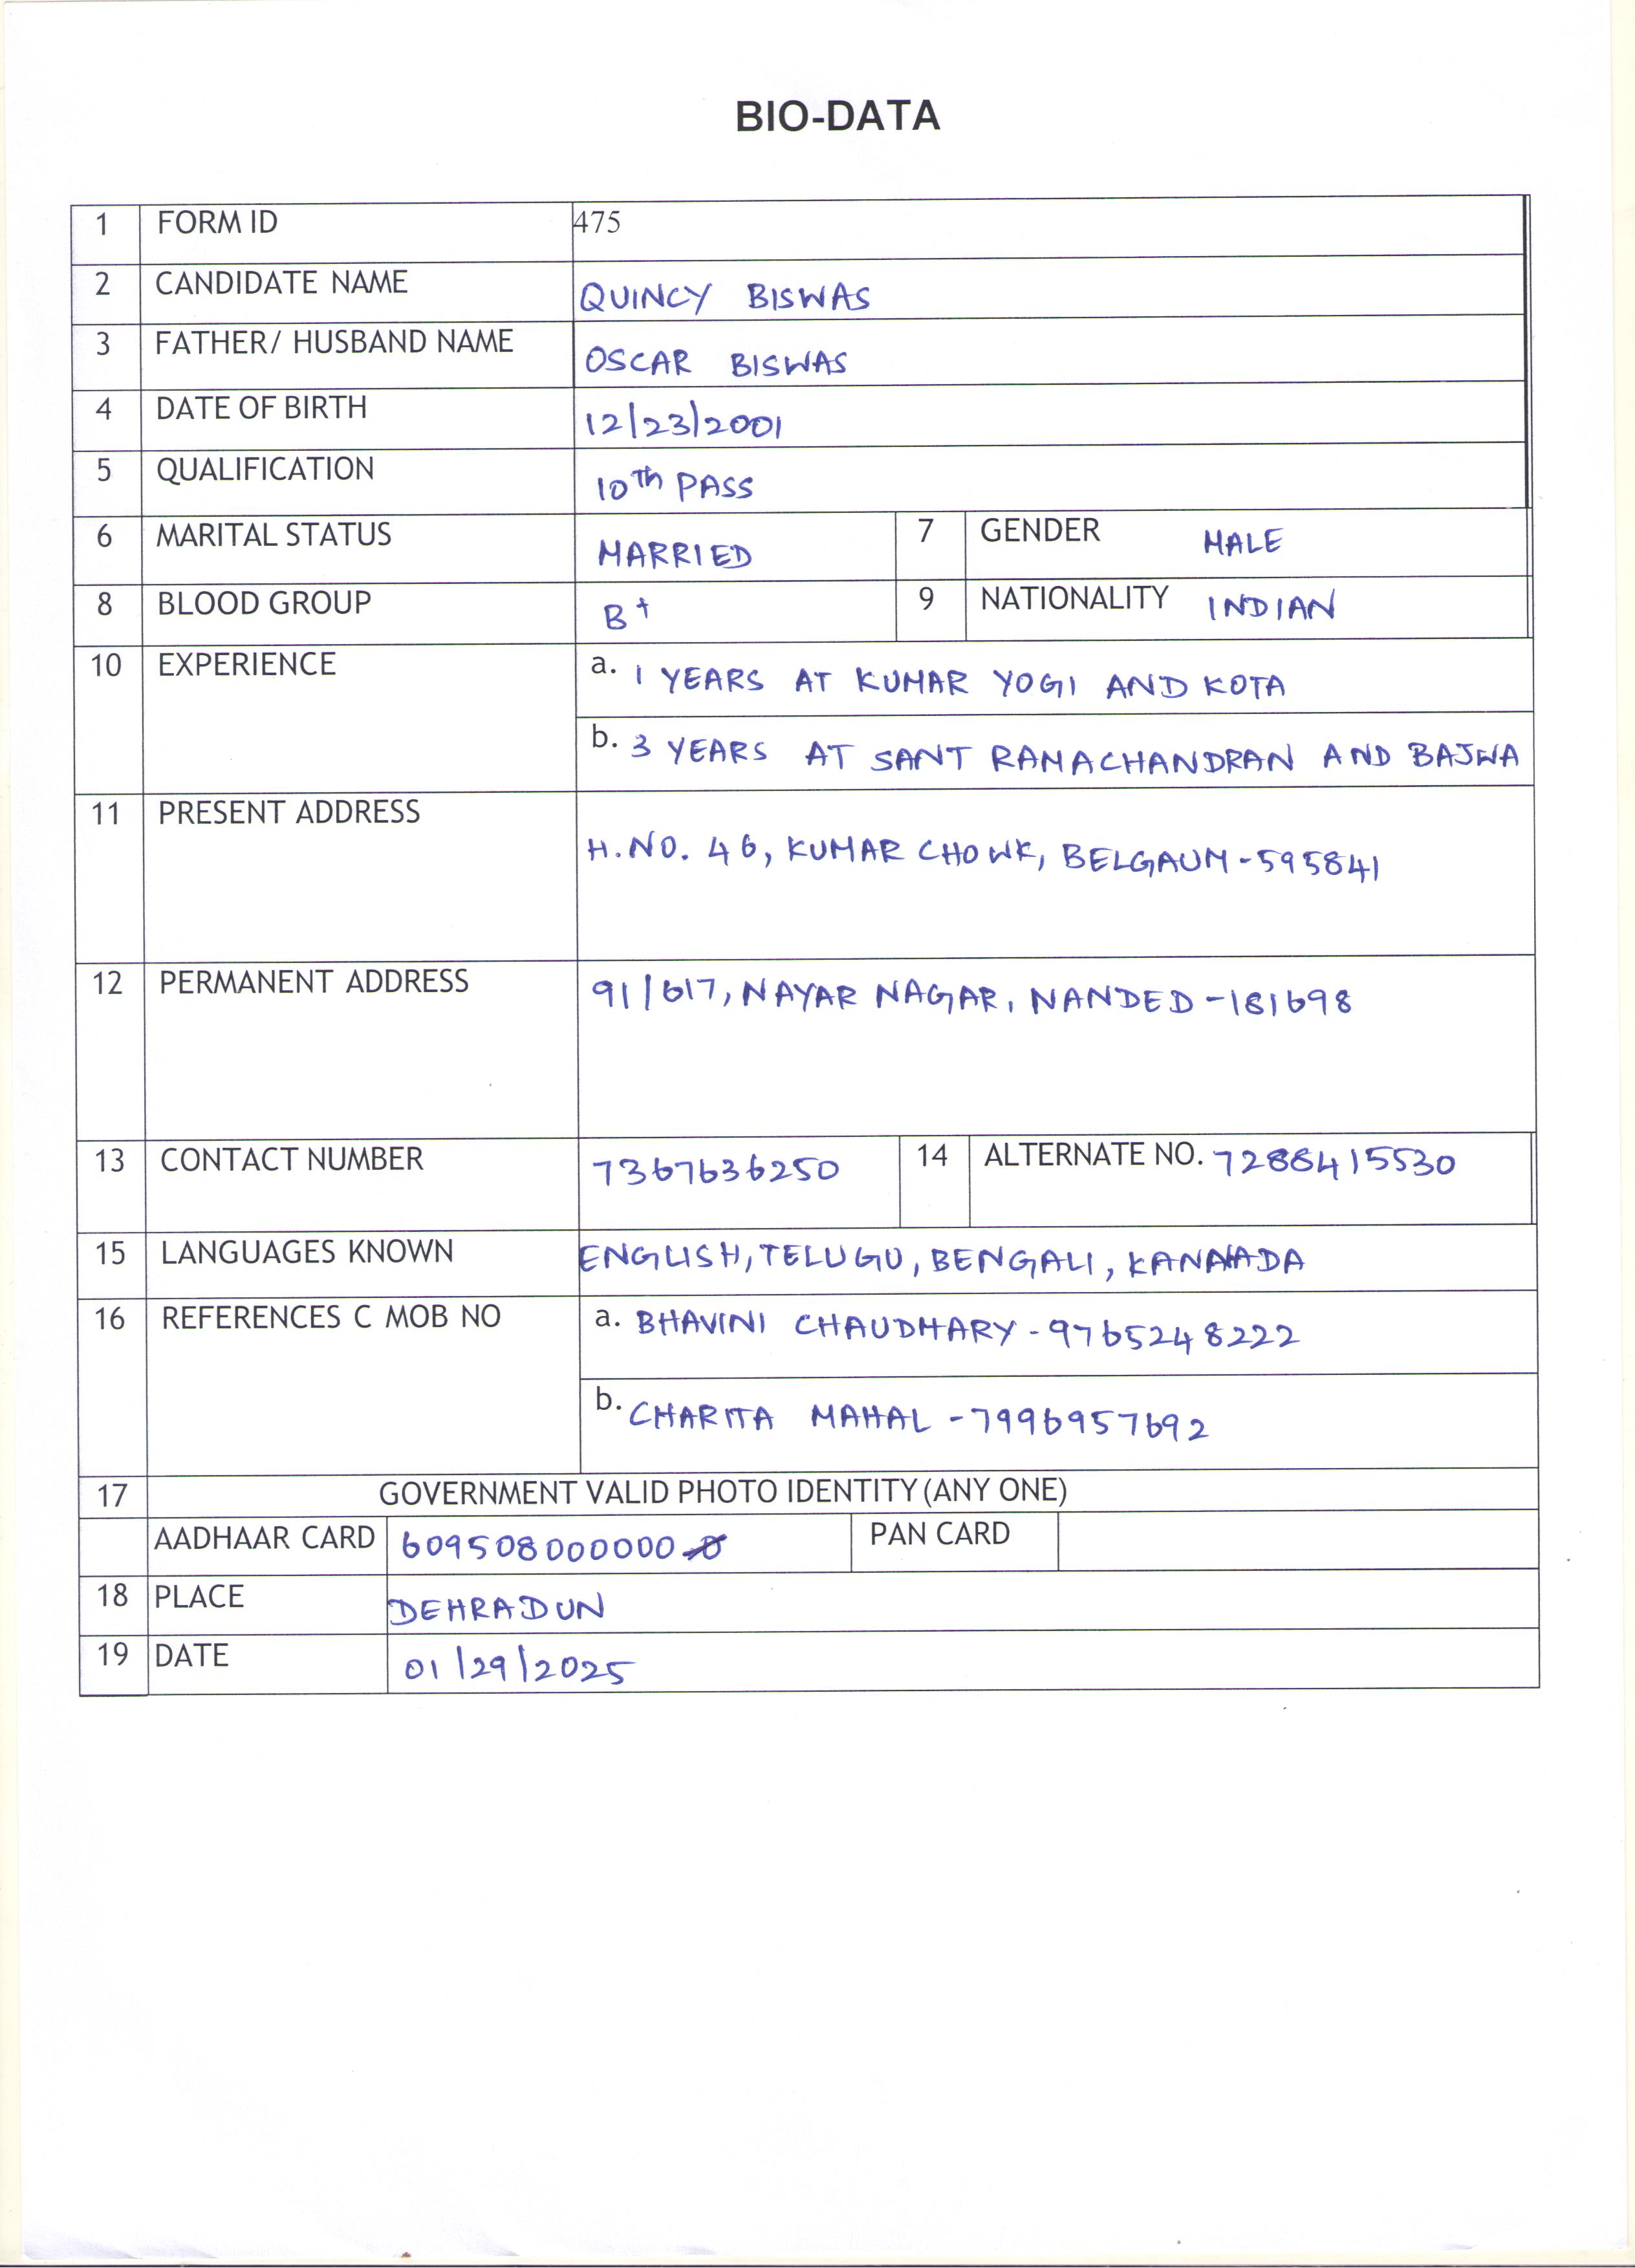 BIO-DATA
1 FORM ID 475
2 CANDIDATE NAME QUINCY BISWAS
3 FATHER/ HUSBAND NAME OSCAR BISWAS
4 DATE OF BIRTH 12/23/2001
5 QUALIFICATION 10th PASS
6 MARITAL STATUS MARRIED 7 GENDER MALE
8 BLOOD GROUP B+ 9 NATIONALITY INDIAN
10 EXPERIENCE a. 1 YEARS AT KUMAR YOGI AND KOTA
b. 3 YEARS AT SANT RAMACHANDRAN AND BAJWA
11 PRESENT ADDRESS
H.NO. 46, KUMAR CHOWK, BELGAUM-595841
12 PERMANENT ADDRESS 91/617, NAYAR NAGAR, NANDED-181698
13 CONTACT NUMBER 7367636250 14 ALTERNATE NO. 7288415530
15 LANGUAGES KNOWN ENGLISH, TELUGU, BENGALI, KANNADA
16 REFERENCES C MOB NO a. BHAVINI CHAUDHARY-9765248222
b. CHARITA MAHAL-7996957692
17 GOVERNMENT VALID PHOTO IDENTITY (ANY ONE)
AADHAAR CARD 609508000000 PAN CARD
18 PLACE DEHRADUN
19 DATE 01/29/2025